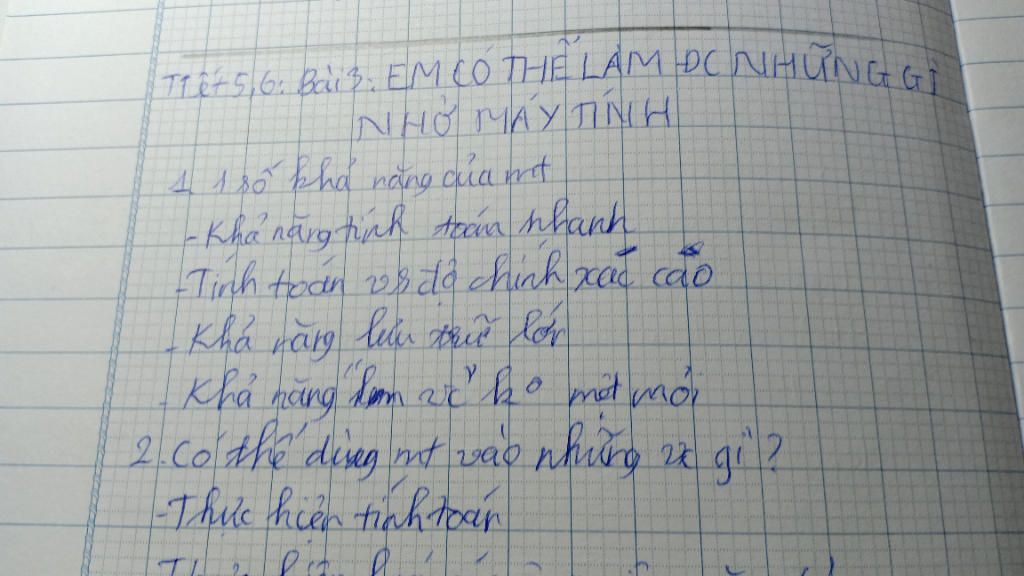 Tiết 5,6: Bài 3: EM CÓ THỂ LÀM ĐC NHỮNG GÌ
NHỜ MÁY TÍNH
1. 1 số khả năng của mt
- Khả năng tính toán nhanh
- Tính toán vs độ chính xác cao
- Khả năng lưu trữ lớn
- Khả năng "làm vc" ko mệt mỏi
2. Có thể dùng mt vào những vc gì?
- Thực hiện tính toán